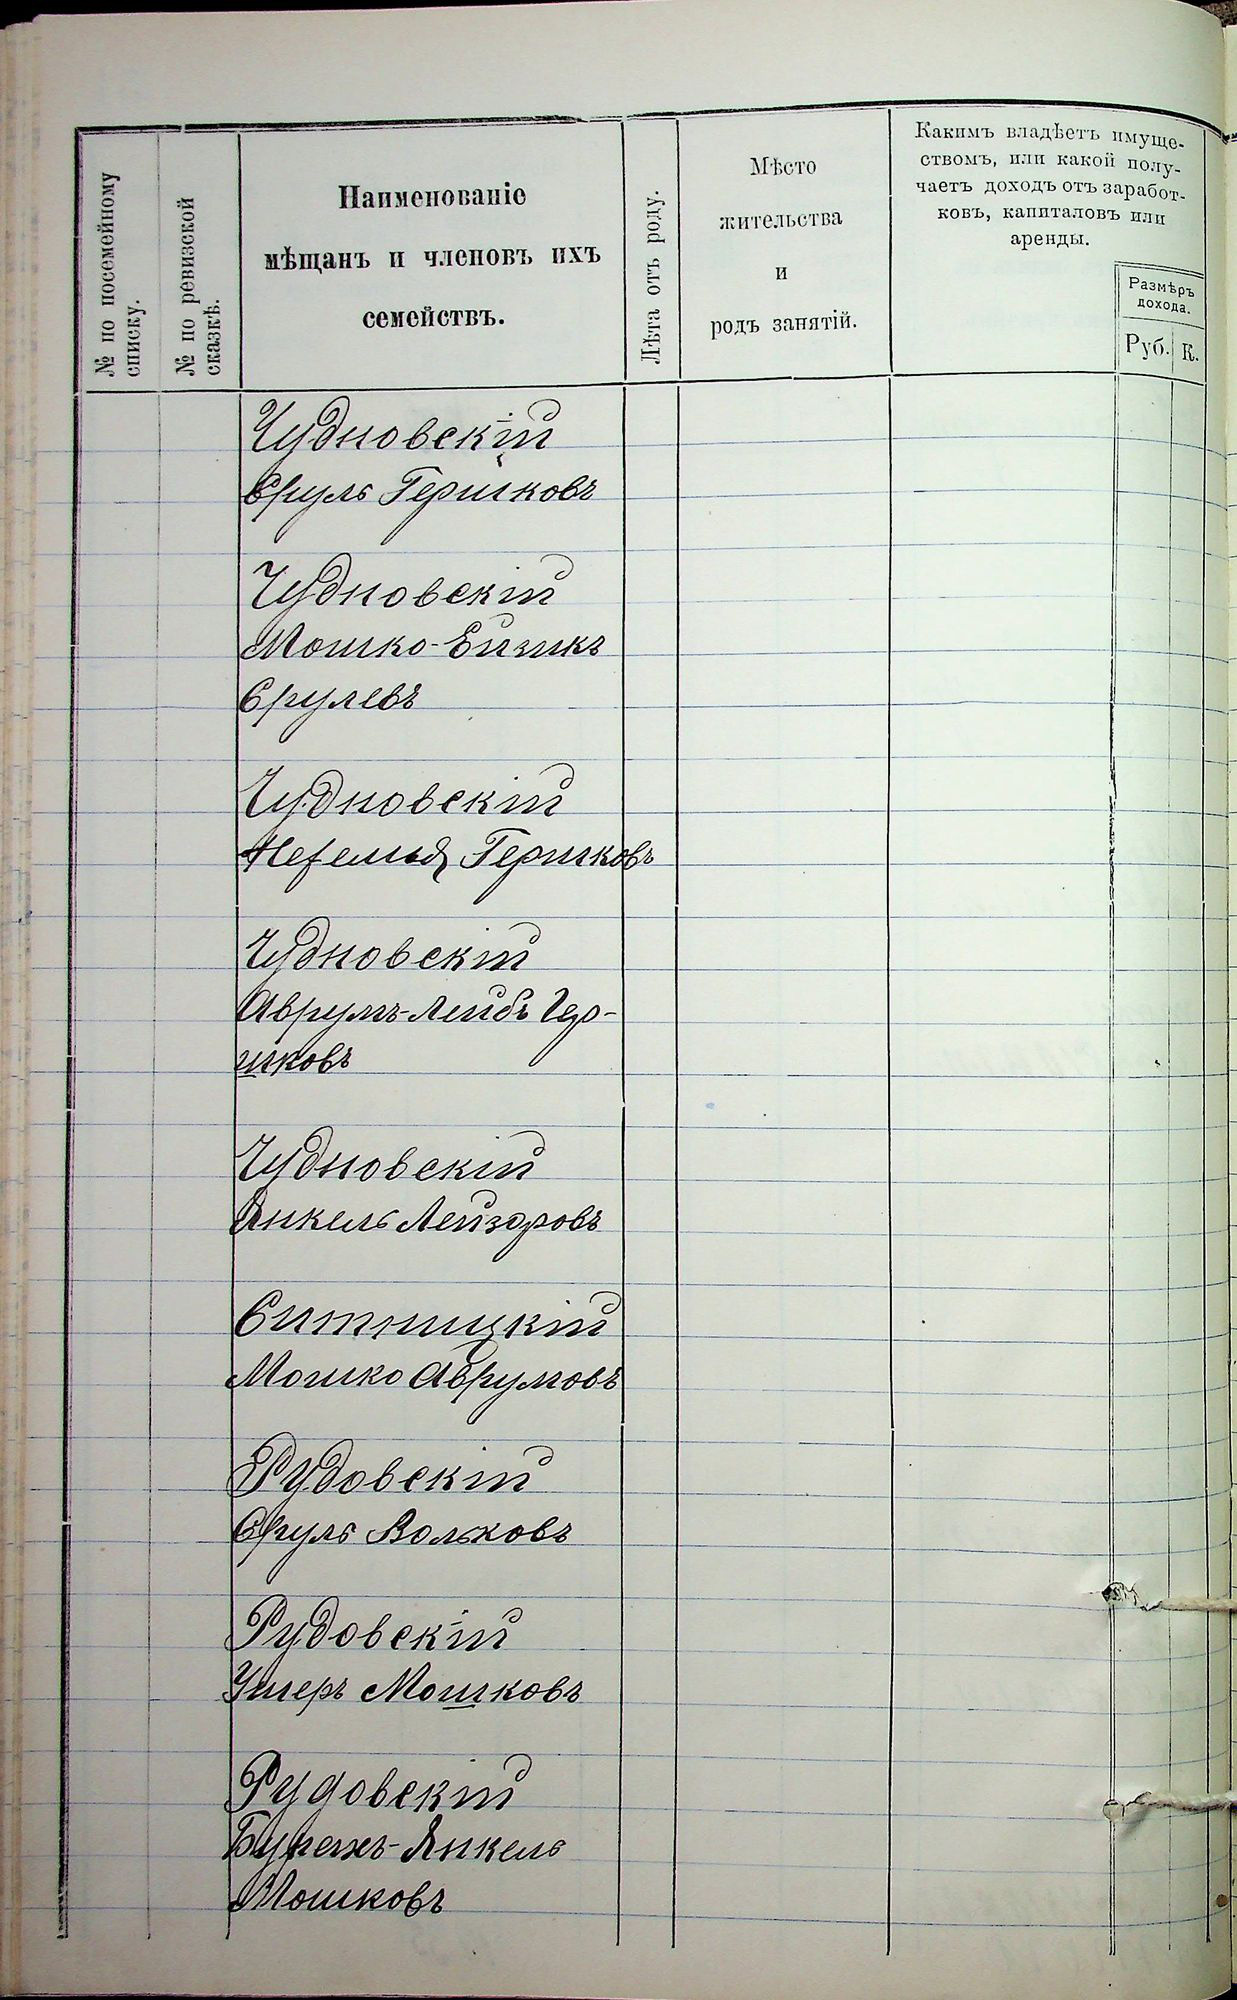 № по посемейному
списку.
№ по ревизской
сказкѣ.
Наименованіе
мѣщанъ и членовъ ихъ
семействъ.
Лѣта отъ роду.
Мѣсто
жительства
и
родъ занятій.
Какимъ владѣетъ имуще-
ствомъ, или какой полу-
чаетъ доходъ отъ заработ-
ковъ, капиталовъ или
аренды.
Размѣръ
дохода.
Руб. К.
Чудновскій
Сруль Гершковъ
Чудновскій
Мошко-Ейзикъ
Срулевъ
Чудновскій
Нехемья Гершковъ
Чудновскій
Аврумъ-Лейбъ Гер-
шковъ
Чудновскій
Янкель Лейзоровъ
Ситницкій
Мошко Аврумовъ
Рудовскій
Сруль Вольковъ
Рудовскій
Ушеръ Мошковъ
Рудовскій
Бурехъ-Янкель
Мошковъ